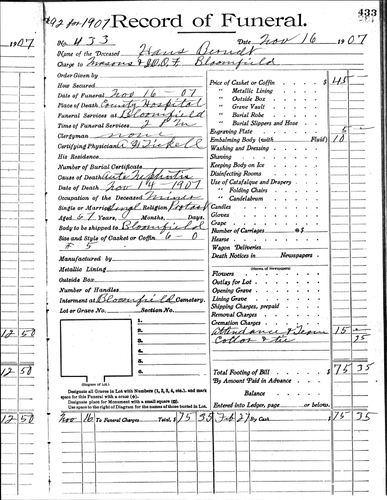 433
92 for 1907
Record of Funeral.
1907
No. 433 Date Nov 16 1907
Name of the Deceased Hans Berndt
Charge to Masons & I.O.O.F. Bloomfield
Order Given by
How Secured
Date of Funeral Nov 16 - 07
Place of Death County Hospital
Funeral Services at Bloomfield
Time of Funeral Services 2 P M
Clergyman none
Certifying Physician
His Residence
Number of Burial Certificate
Cause of Death Acute Nephritis
Date of Death Nov 14 - 1907
Occupation of the Deceased
Single or Married Singl Religion
Aged 67 Years, Months, Days.
Body to be shipped to Bloomfield
Size and Style of Casket or Coffin 6 - 0
# 5
Manufactured by
Metallic Lining
Outside Box
Number of Handles
Interment at Bloomfield Cemetery.
Lot or Grave No. Section No.
1.
2.
3.
4.
5.
6.
(Diagram of Lot.)
Designate all Graves in Lot with Numbers (1, 2, 3, 4, etc.), and mark
space for this Funeral with a cross (+).
Designate place for Monument with a small square (□).
Use space to the right of Diagram for the names of those buried in Lot.
Price of Casket or Coffin $ 45
" Metallic Lining
" Outside Box
" Grave Vault
" Burial Robe
" Burial Slippers and Hose
Engraving Plate 5
Embalming Body (with Fluid) 10
Washing and Dressing
Shaving
Keeping Body on Ice
Disinfecting Rooms
Use of Catafalque and Drapery
" Folding Chairs
" Candelabrum
Candles
Gloves
Crape
Number of Carriages @ $
Hearse
Wagon Deliveries
Death Notices in Newspapers
(Names of Newspapers)
Flowers
Outlay for Lot
Opening Grave
Lining Grave
Shipping Charges, prepaid
Removal Charges
Cremation Charges
Attendance & Team 15
Collar & tie 35
Total Footing of Bill $ 75 35
By Amount Paid in Advance
Balance
Entered into Ledger, page or below.
12 50
12 50
12 50
Nov 16 To Funeral Charges Total, $ 75 35 Feb 27 By Cash $ 75 35